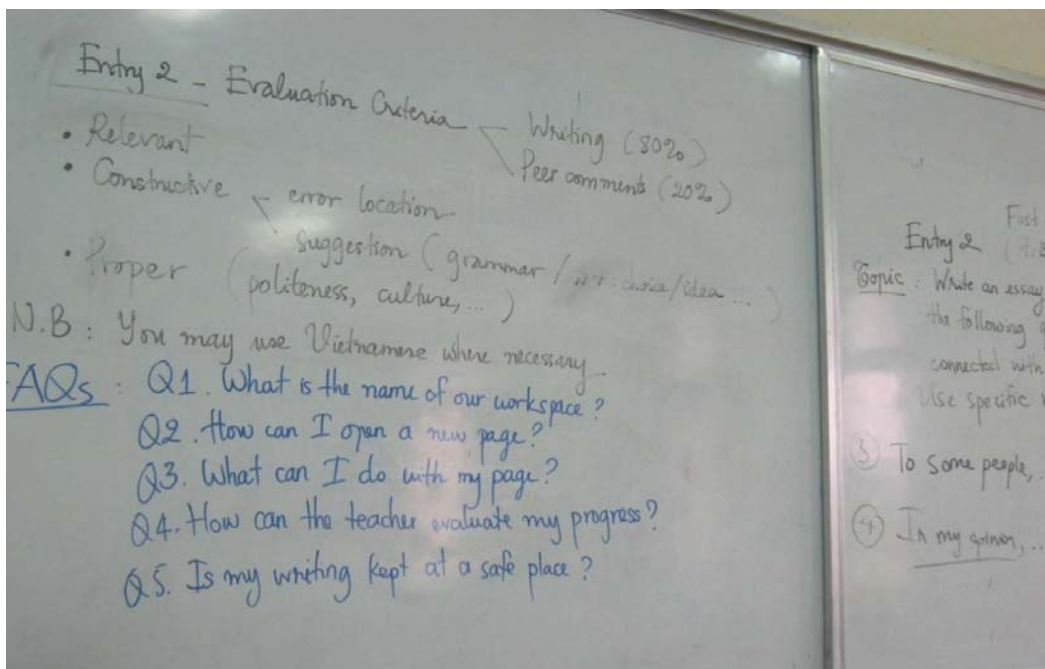 Entry 2 - Evaluation Criteria - Writing (80%)
Peer comments (20%)
• Relevant
• Constructive - error location
suggestion (grammar / choice/idea ...)
• Proper (politeness, culture, ...)
N.B : You may use Vietnamese where necessary
FAQs : Q1. What is the name of our workspace?
Q2. How can I open a new page?
Q3. What can I do with my page?
Q4. How can the teacher evaluate my progress?
Q5. Is my writing kept at a safe place?
Entry 2
Topic : Write an essay
the following
connected with
Use specific
③ To some people, ..
④ In my opinion, ...